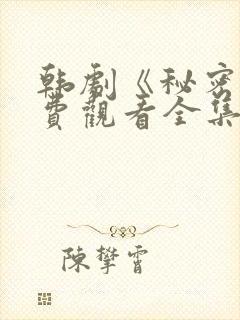 韩剧《秘密
费觀看全集
陳攀霄